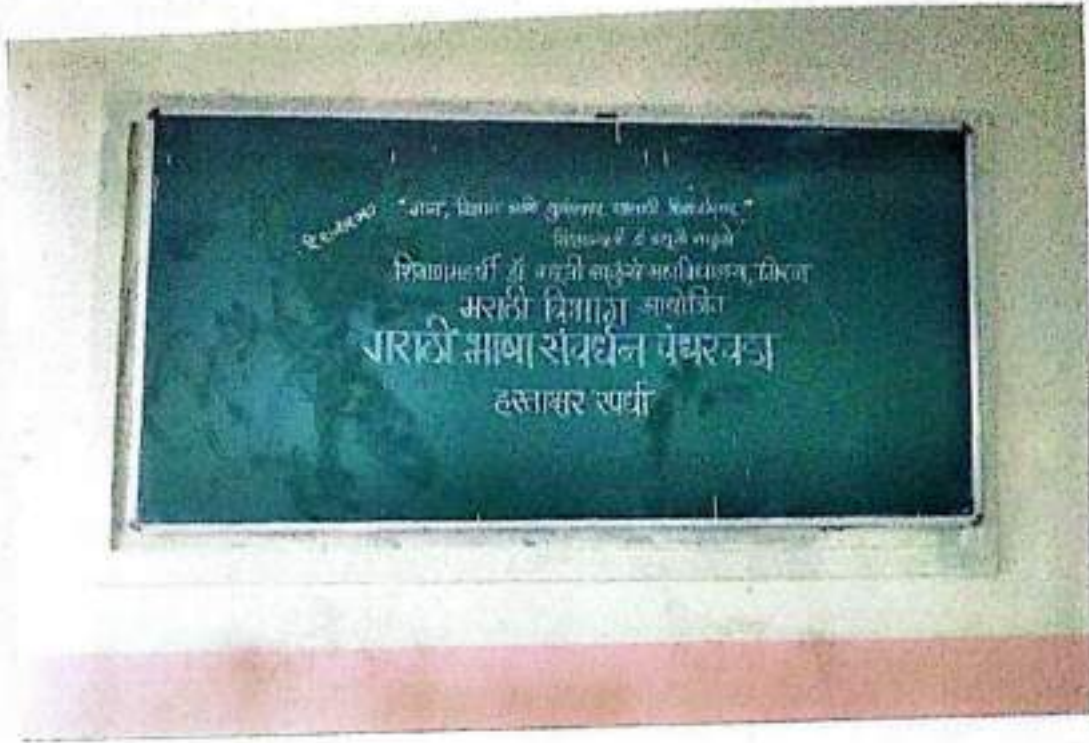 "ज्ञान, विज्ञान आणि सुसंस्कार यासाठी शिक्षणप्रसार"
शिक्षणमहर्षी डॉ बापूजी साळुंखे
शिक्षणमहर्षी डॉ. बापूजी साळुंखे महाविद्यालय, मिरज
मराठी विभाग आयोजित
मराठी भाषा संवर्धन पंधरवडा
हस्ताक्षर स्पर्धा